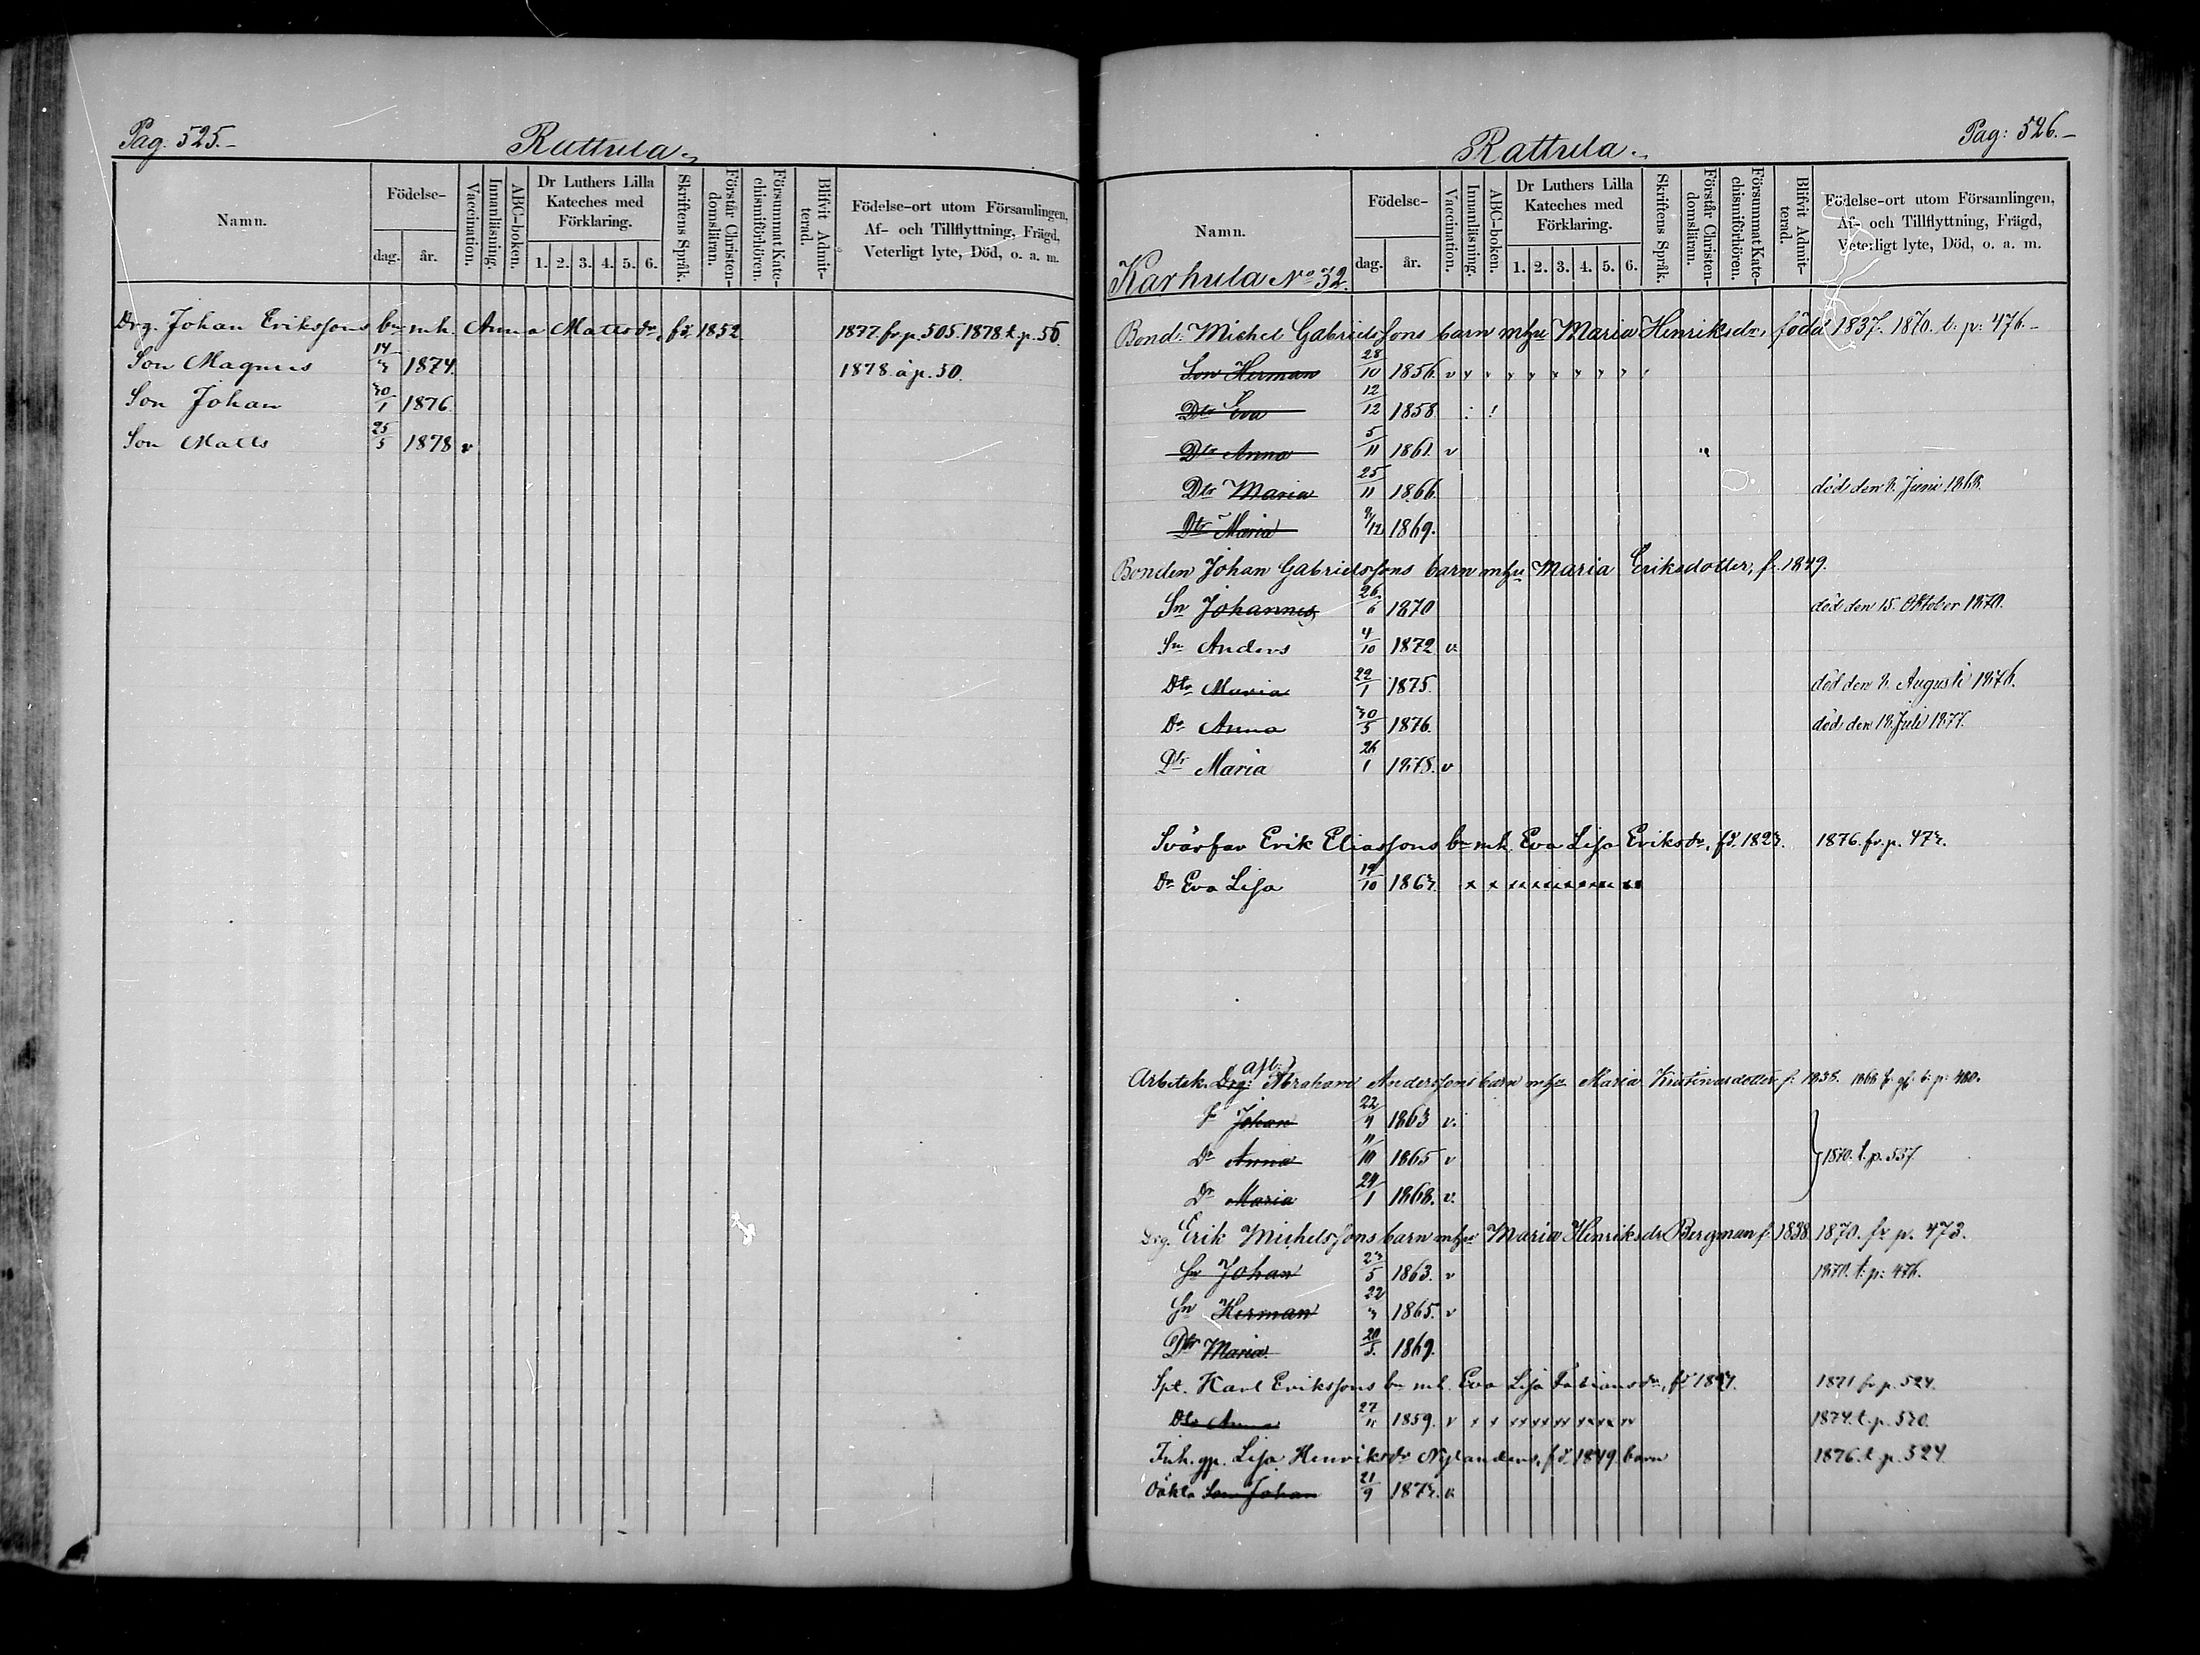 Pag. 525.-
Rattula.
Namn.
Födelse-
dag.
år.
Vaccination.
Innanläsning.
ABC-boken.
Dr Luthers Lilla
Kateches med
Förklaring.
1. 2. 3. 4. 5. 6.
Skriftens Språk.
Förstår Christen-
domsläran.
Försummat Kate-
chismiförhören.
Blifvit Admit-
terad.
Födelse-ort utom Församlingen,
Af- och Tillflyttning, Frägd,
Veterligt lyte, Död, o. a. m.
Drg. Johan Erikssons bn mh. Anna Mattsdr, fd. 1852. 1877. fr p. 505. 1878 t. p. 50.
Son Magnus 14/3 1874. 1878 å p. 50.
Son Johan 30/1 1876.
Son Matts 25/5 1878 v
Pag: 526.-
Rattula.
Namn.
Födelse-
dag.
år.
Vaccination.
Innanläsning.
ABC-boken.
Dr Luthers Lilla
Kateches med
Förklaring.
1. 2. 3. 4. 5. 6.
Skriftens Språk.
Förstår Christen-
domsläran.
Försummat Kate-
chismiförhören.
Blifvit Admit-
terad.
Födelse-ort utom Församlingen,
Af- och Tillflyttning, Frägd,
Veterligt lyte, Död, o. a. m.
Karhula No 32.
Bond. Michel Gabrielssons barn mhu Maria Henriksdr, född 1837. 1870. t. p: 476.-
Son Herman 28/10 1856. v v v v v v v v v
Dtr Eva 12/12 1858.
Dtr Anna 5/11 1861. v
Dtr Maria 25/11 1866. död den 8. Juni 1868.
Dtr Maria 9/12 1869.
Bonden Johan Gabrielssons barn mhu Maria Eriksdotter, f. 1849.
Sn Johannes 26/6 1870 död den 15. Oktober 1870.
Sn Anders 4/10 1872 v.
Dtr Maria 22/1 1875. död den 8. Augusti 1876.
Dr Anna 30/5 1876. död den 18. Juli 1877.
Dtr Maria 26/1 1878. v
Svärfar Erik Eliassons bn mh. Eva Lisa Eriksdr, fd. 1823. 1876. fr. p. 473.
Dr Eva Lisa 19/10 1863. x x x x x x x x x
Arbetsk. Drg: Abraham Anderssons barn mhu Maria Kristinasdotter f. 1838.
Sn Johan 22/4 1863 v.
Dr Anna 11/10 1865 v 1870. t. p. 537.
Dr Maria 24/1 1868. v.
Drg. Erik Michelssons barn mhu Maria Henriksdr Bergman f. 1838 1870. fr p. 473.
Sn Johan 23/5 1863. v 1870. t. p: 476.
Sn Herman 22/3 1865. v
Dtr Maria 20/3. 1869.
Spt. Karl Erikssons bn mh. Eva Lisa Fabiansdr, fd 1871 fr p. 524.
Dtr Anna 27/11 1859. v x x x x x x x x x 1874. t. p. 520.
Inh. gp. Lisa Henriksdr Nylanders, fd. 1849 barn 1876. t. p. 524.
Oäkta Son Johan 21/9 1873. v.